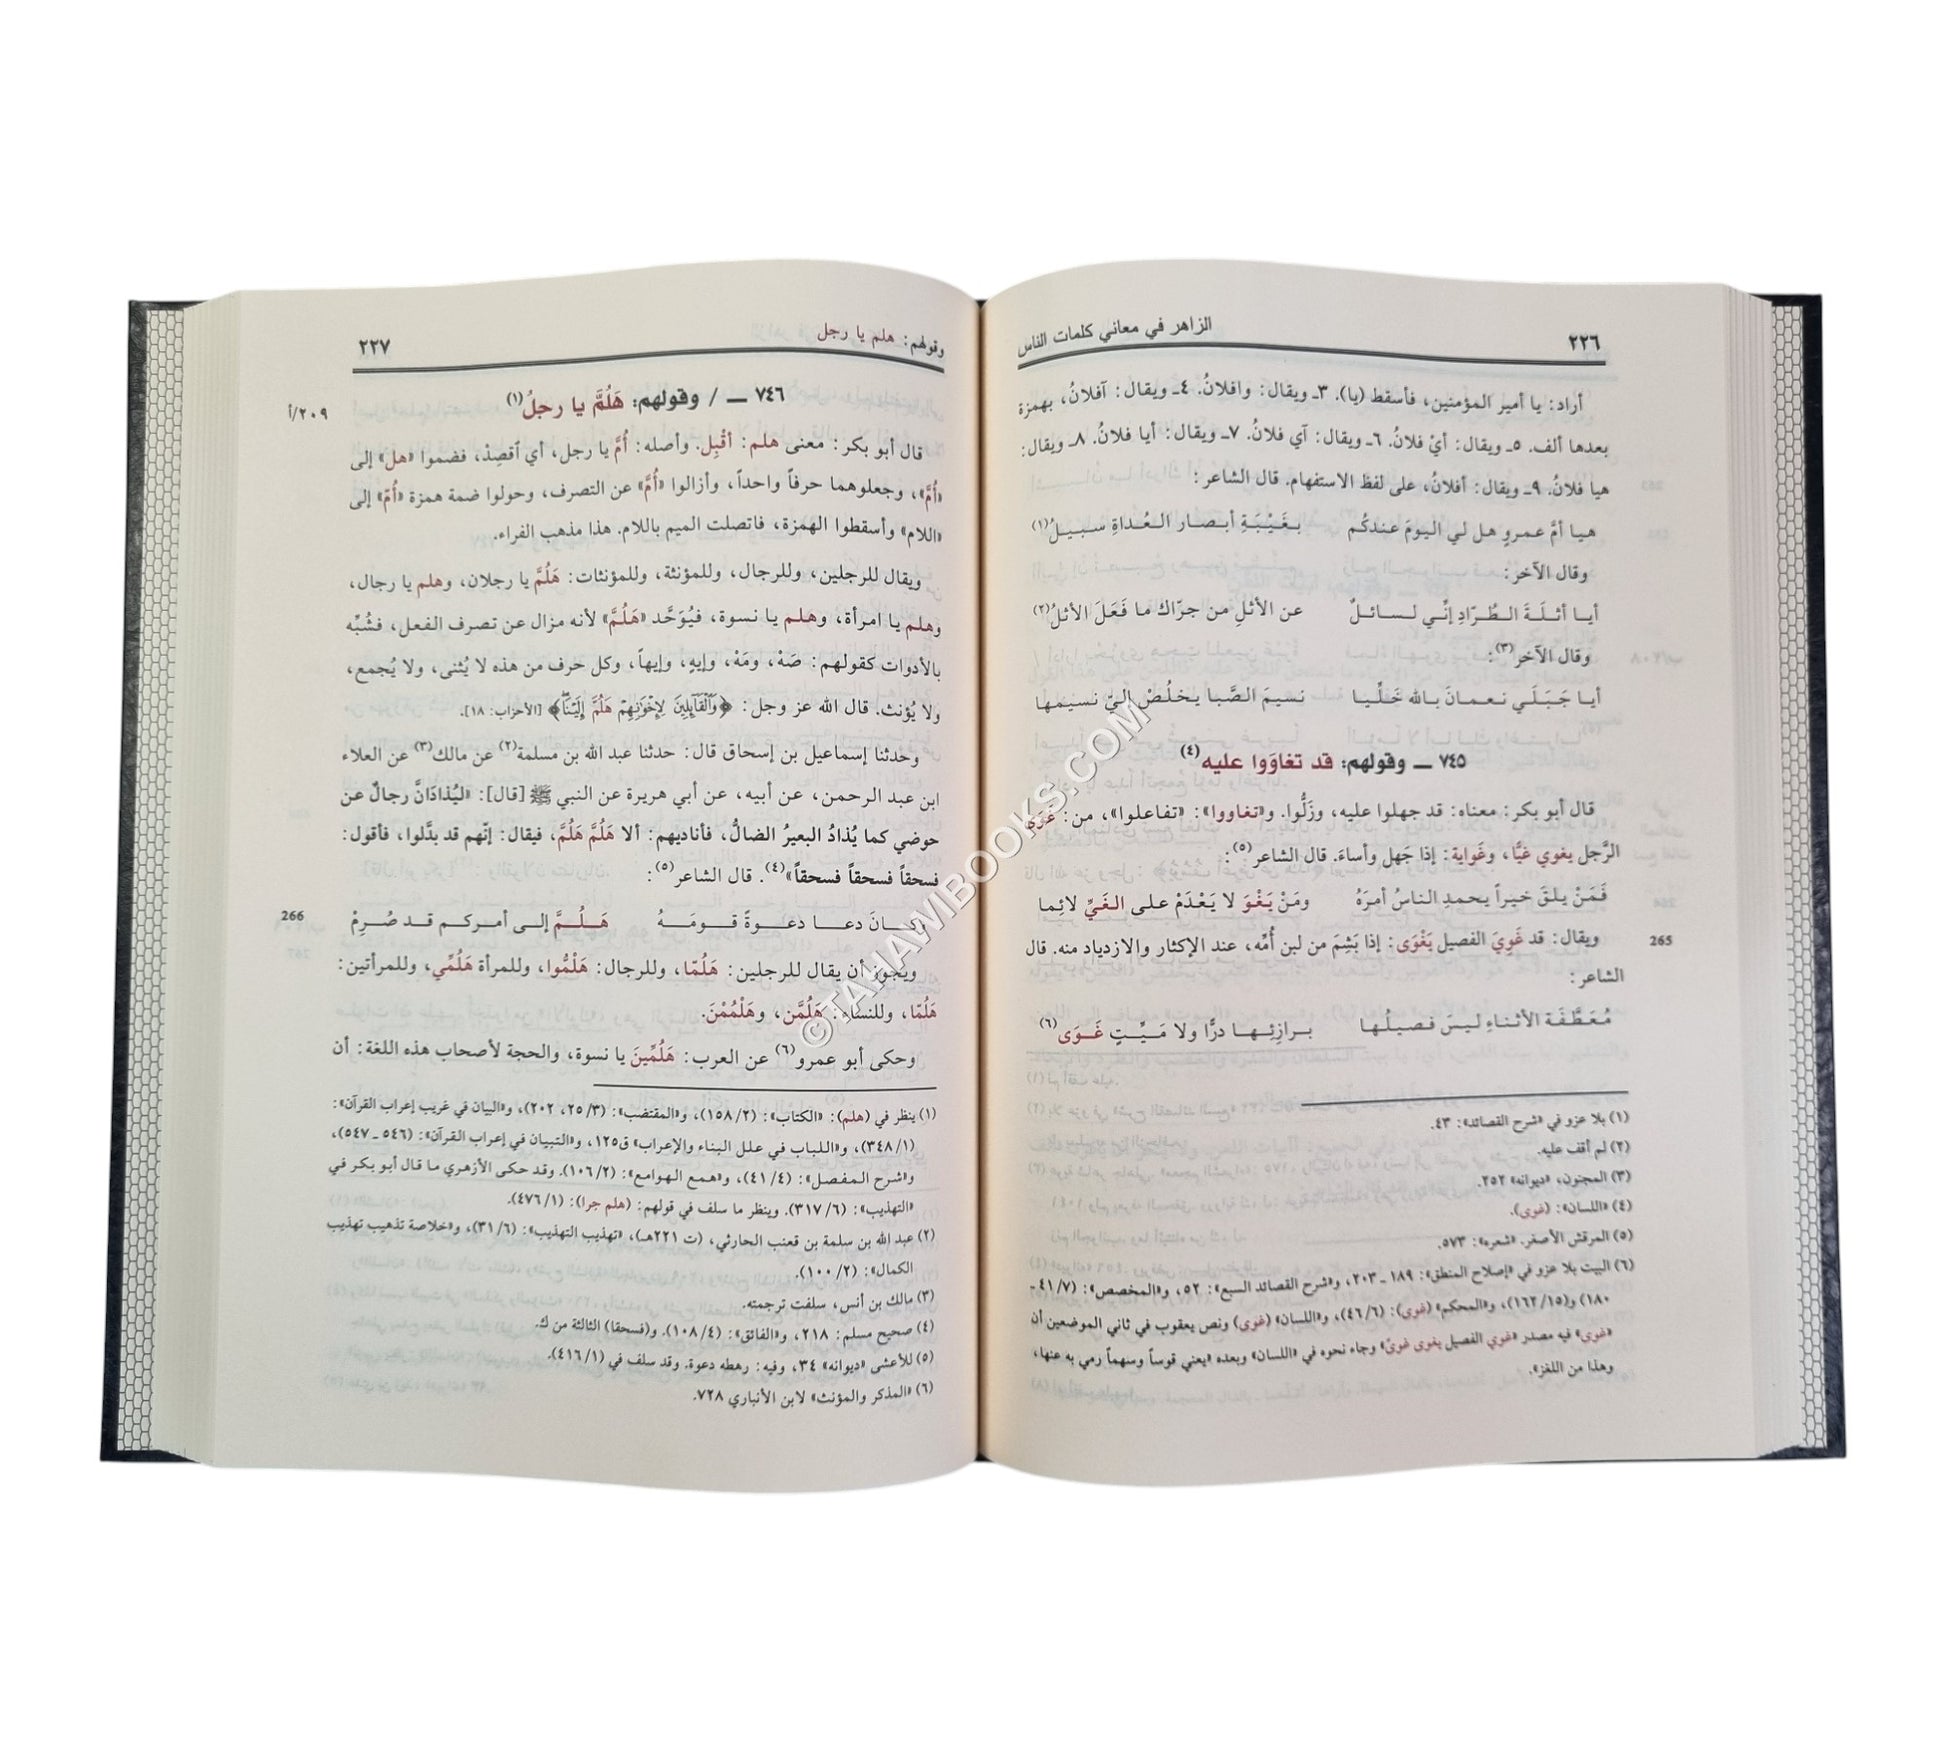 ٢٢٦
الزاهر في معاني كلمات الناس
أراد: يا أمير المؤمنين، فأسقط (يا). ٣ـ ويقال: وافلانُ. ٤ـ ويقال: آفلانُ، بهمزة
بعدها ألف. ٥ـ ويقال: أيْ فلانُ. ٦ـ ويقال: آي فلانُ. ٧ـ ويقال: أيا فلانُ. ٨ـ ويقال:
هيا فلانُ. ٩ـ ويقال: أفلانُ، على لفظ الاستفهام. قال الشاعر:
هيا أمَّ عمروٍ هل لي اليومَ عندكُم بغَيْبَةِ أبصار العُداةِ سبيلُ(١)
وقال الآخر:
أيا أثلَةَ الطُرّادِ إنّي لسائلٌ عن الأثلِ من جرّاك ما فَعَلَ الأثلُ(٢)
وقال الآخر(٣):
أيا جَبَلَي نعمانَ بالله خَلِّيا نسيمَ الصَّبا يخلُصْ إليّ نسيمها
٧٤٥ ـ وقولهم: قد تغاوَوا عليه(٤)
قال أبو بكر: معناه: قد جهلوا عليه، وزَلُّوا. و«تغاووا»: «تفاعلوا»، من: غَوَى
الرَّجل يغوي غيًّا، وغَواية: إذا جَهل وأساءَ. قال الشاعر(٥):
فَمَنْ يلقَ خيراً يحمدِ الناسُ أمرَهُ ومَنْ يَغْوَ لا يَعْدَمْ على الغَيِّ لائِما
ويقال: قد غَوِيَ الفصيل يَغْوَى: إذا بَشِمَ من لبن أُمِّه، عند الإكثار والازدياد منه. قال
265
الشاعر:
مُعَطَّفَة الأثناءِ ليسَ فصيلُها برازِئِها درًّا ولا مَيِّتٍ غَوَى(٦)
(١) بلا عزو في «شرح القصائد»: ٤٣.
(٢) لم أقف عليه.
(٣) المجنون، «ديوانه» ٢٥٢.
(٤) «اللسان»: (غوى).
(٥) المرقش الأصغر. «شعره»: ٥٧٣.
(٦) البيت بلا عزو في «إصلاح المنطق»: ١٨٩ ـ ٢٠٣، و«شرح القصائد السبع»: ٥٢، و«المخصص»: (٧/ ٤١ ـ
١٨٠) و(١٥/ ١٦٢)، و«المحكم» (غوى): (٦/ ٤٦)، و«اللسان» (غوى) ونص يعقوب في ثاني الموضعين أن
«غوى» فيه مصدر «غوي الفصيل يغوى غوىً» وجاء نحوه في «اللسان» وبعده «يعني قوساً وسهماً رمي به عنها،
وهذا من اللغز».
وقولهم: هلم يا رجل
٢٢٧
٧٤٦ ـ / وقولهم: هَلُمَّ يا رجلُ(١)
٢٠٩/أ
قال أبو بكر: معنى هلم: أقْبِل. وأصله: أُمَّ يا رجل، أي أقصِدْ، فضموا «هل» إلى
«أُمَّ»، وجعلوهما حرفاً واحداً، وأزالوا «أُمَّ» عن التصرف، وحولوا ضمة همزة «أُمّ» إلى
«اللام» وأسقطوا الهمزة، فاتصلت الميم باللام. هذا مذهب الفراء.
ويقال للرجلين، وللرجال، وللمؤنثة، وللمؤنثات: هَلُمَّ يا رجلان، وهلم يا رجال،
وهلم يا امرأة، وهلم يا نسوة، فيُوَحَّد «هَلُمَّ» لأنه مزال عن تصرف الفعل، فشُبِّه
بالأدوات كقولهم: صَهْ، ومَهْ، وإيهٍ، وإيهاً، وكل حرف من هذه لا يُثنى، ولا يُجمع،
ولا يُؤنث. قال الله عز وجل: ﴿وَالْقَائِلِينَ لِإِخْوَانِهِمْ هَلُمَّ إِلَيْنَا﴾ [الأحزاب: ١٨].
وحدثنا إسماعيل بن إسحاق قال: حدثنا عبد الله بن مسلمة(٢) عن مالك(٣) عن العلاء
ابن عبد الرحمن، عن أبيه، عن أبي هريرة عن النبي ﷺ [قال]: «ليُذادَانَّ رجالٌ عن
حوضي كما يُذادُ البعيرُ الضالُّ، فأناديهم: ألا هَلُمَّ هَلُمَّ، فيقال: إنّهم قد بدَّلوا، فأقول:
فسحقاً فسحقاً فسحقاً»(٤). قال الشاعر(٥):
وكانَ دعا دعوةً قومَهُ هَلُمَّ إلى أمركم قد صُرِمْ
266
ويجوز أن يقال للرجلين: هَلُمّا، وللرجال: هَلُمُّوا، وللمرأة هَلُمِّي، وللمرأتين:
هَلُمّا، وللنساء: هَلُمَّن، وهَلْمُمْنَ.
وحكى أبو عمرو(٦) عن العرب: هَلُمِّينَ يا نسوة، والحجة لأصحاب هذه اللغة: أن
(١) ينظر في (هلم): «الكتاب»: (٢/ ١٥٨)، و«المقتضب»: (٣/ ٢٥، ٢٠٢)، و«البيان في غريب إعراب القرآن»:
(١/ ٣٤٨)، و«اللباب في علل البناء والإعراب» ق١٢٥، و«التبيان في إعراب القرآن»: (٥٤٦ ـ ٥٤٧)،
و«شرح المفصل»: (٤/ ٤١)، و«همع الهوامع»: (٢/ ١٠٦). وقد حكى الأزهري ما قال أبو بكر في
«التهذيب»: (٦/ ٣١٧). وينظر ما سلف في قولهم: (هلم جرا): (١/ ٤٧٦).
(٢) عبد الله بن سلمة بن قعنب الحارثي، (ت ٢٢١هـ)، «تهذيب التهذيب»: (٦/ ٣١)، و«خلاصة تذهيب تهذيب
الكمال»: (٢/ ١٠٠).
(٣) مالك بن أنس، سلفت ترجمته.
(٤) صحيح مسلم: ٢١٨، و«الفائق»: (٤/ ١٠٨). و(فسحقا) الثالثة من ك.
(٥) للأعشى «ديوانه» ٣٤، وفيه: رهطه دعوة. وقد سلف في (١/ ٤١٦).
(٦) «المذكر والمؤنث» لابن الأنباري ٧٢٨.
©TAHAWIBOOKS.COM